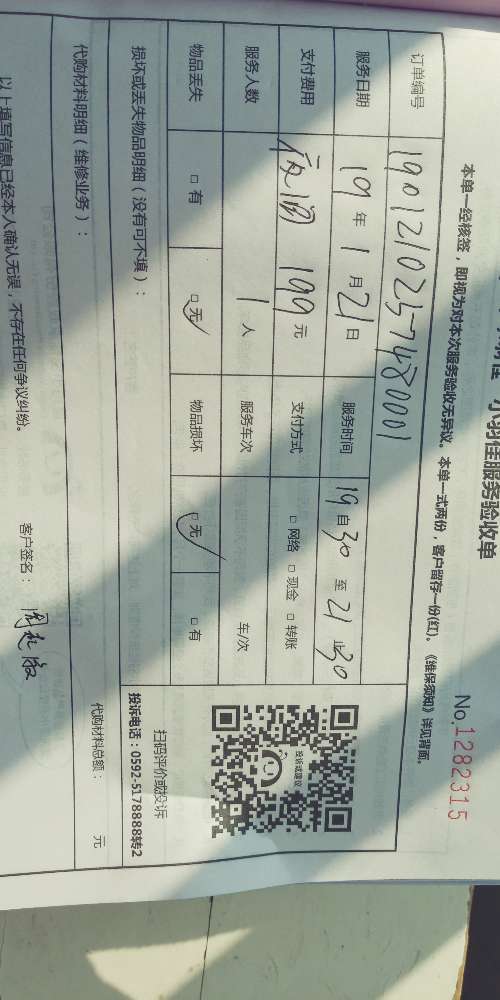 小羽佳服务验收单
No.1282315
本单一经核签，即视为对本次服务验收无异议。本单一式两份，客户留存一份(红)。《维保须知》详见背面。
订单编号 1901210257480001
服务日期 19年1月21日 服务时间 19自30至21止30
支付费用 199元 支付方式 □网络 □现金 □转账
服务人数 1人 服务车次 车/次
物品丢失 □有 □无 物品损坏 □无 □有
扫码评价或投诉
投诉电话：0592-5178888转2
投诉或建议
损坏或丢失物品明细（没有可不填）：
代购材料明细（维修业务）：
代购材料总额： 元
以上填写信息已经本人确认无误，不存在任何争议纠纷。
客户签名：